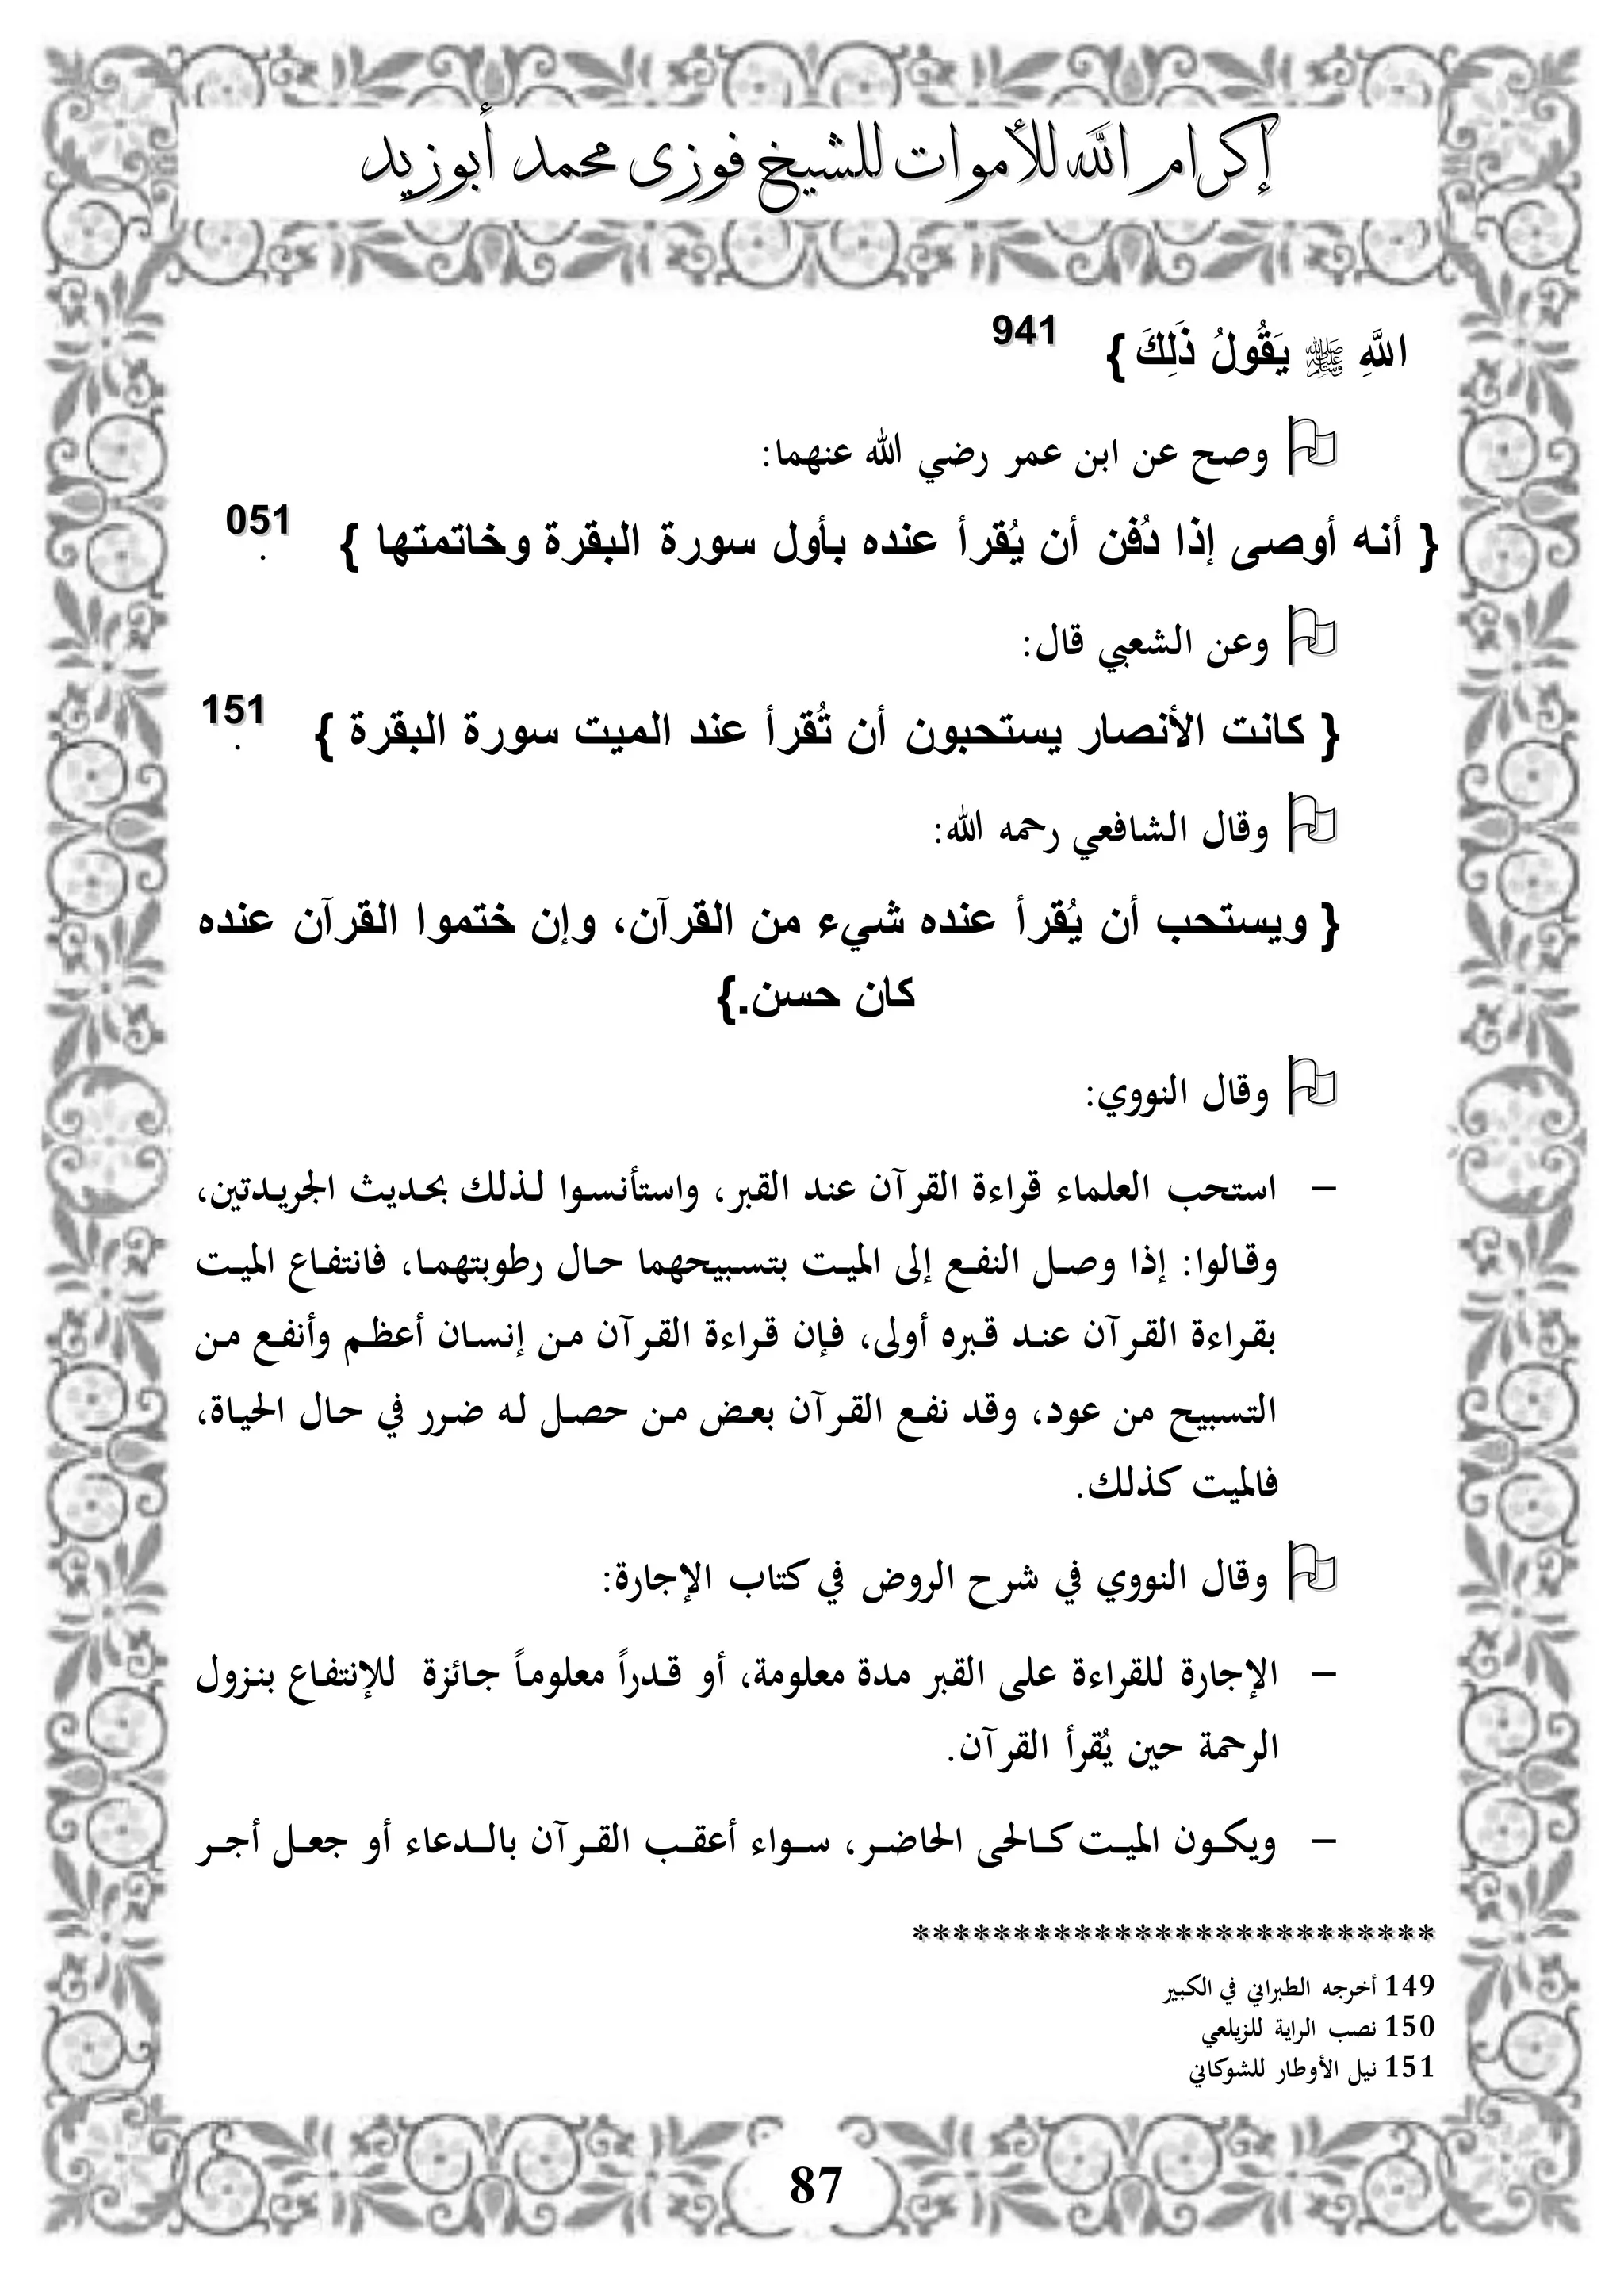 إكرام الله للأموات للشيخ فوزى محمد أبوزيد
اللَّهِ ﷺ يَقُولُ ذَلِكَ } 941
وصح عن ابن عمر رضي الله عنهما:
{ أنه أوصى إذا دُفن أن يُقرأ عنده بأول سورة البقرة وخاتمتها } 051 .
وعن الشعبي قال:
{ كانت الأنصار يستحبون أن تُقرأ عند الميت سورة البقرة } 151 .
وقال الشافعي رحمه الله:
{ ويستحب أن يُقرأ عنده شيء من القرآن، وإن ختموا القرآن عنده
كان حسن.}
وقال النووي:
– استحب العلماء قراءة القرآن عند القبر، واستأنسوا لذلك بحديث الجريدتين،
وقالوا: إذا وصل النفع إلى الميت بتسبيحهما حال رطوبتهما، فانتفاع الميت
بقراءة القرآن عند قبره أولى، فإن قراءة القرآن من إنسان أعظم وأنفع من
التسبيح من عود، وقد نفع القرآن بعض من حصل له ضرر في حال الحياة،
فالميت كذلك.
وقال النووي في شرح الروض في كتاب الإجارة:
– الإجارة للقراءة على القبر مدة معلومة، أو قدراً معلوماً جائزة للإنتفاع بنزول
الرحمة حين يُقرأ القرآن.
– ويكون الميت كالحى الحاضر، سواء أعقب القرآن بالدعاء أو جعل أجر
**************************
149 أخرجه الطبراني في الكبير
150 نصب الراية للزيلعي
151 نيل الأوطار للشوكاني
87